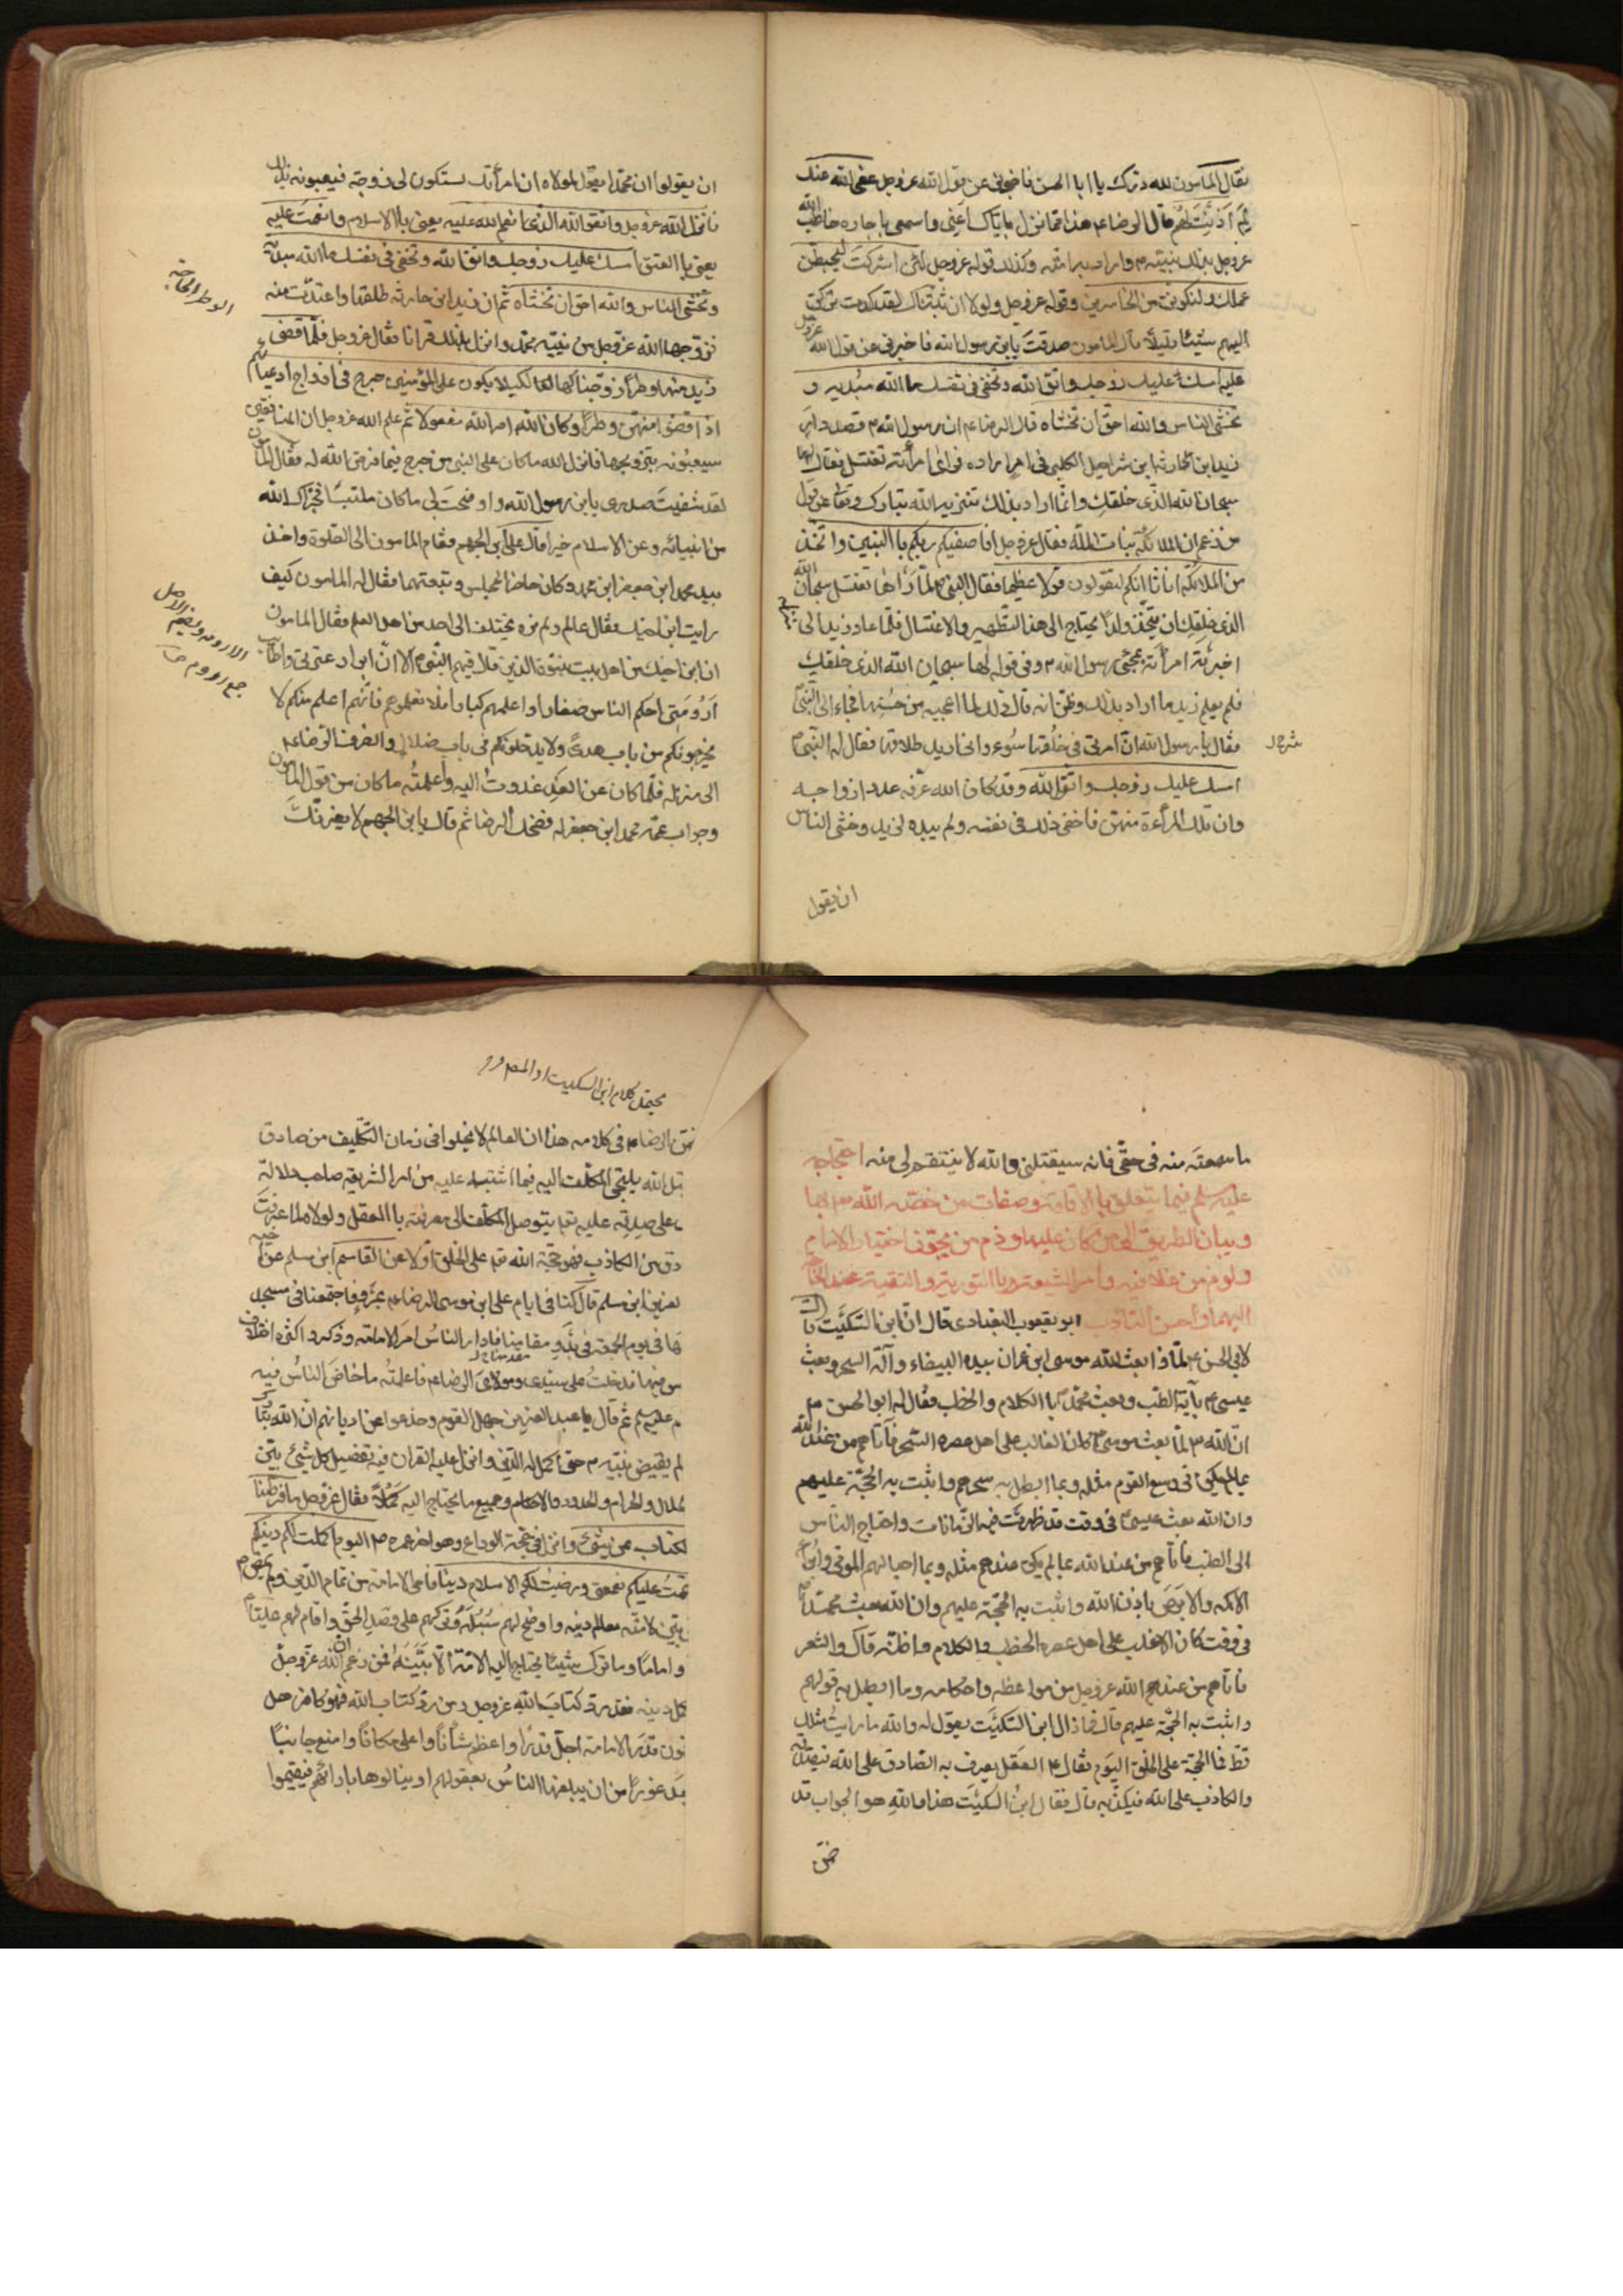 فقال المأمون لله درك يا ابا الحسن فاخبرني عن قول الله عز وجل عفى الله عنك
لم اذنت لهم قال الرضا ع هذا مما نزل باياك اعني واسمعي يا جاره خاطب الله
عز وجل بذلك نبيه ص واراد به امته وكذلك قوله عز وجل لئن اشركت ليحبطن
عملك ولتكونن من الخاسرين وقوله عز وجل ولولا ان ثبتناك لقد كدت تركن
اليهم شيئا قليلا قال المامون صدقت يابن رسول الله فاخبرني عن قول الله عز وجل
امسك عليك زوجك واتق الله وتخفي في نفسك ما الله مبديه و
تخشى الناس والله احق ان تخشاه قال الرضا ع ان رسول الله ص قصد دار
زيد ابن الحارثه ابن شراحيل الكلبي في امر اراده فراى امرأته تغتسل فقال لها
سبحان الله الذي خلقك وانما اراد بذلك تنزيه الله تبارك وتعا عن قول
من زعم ان الملائكة بنات الله فقال عز وجل افاصفيكم ربكم باالبنين واتخذ
من الملائكة اناثا انكم لتقولون قولا عظيما فقال النبي ص لما رآها تغتسل سبحان الله
الذي خلقك ان يتخذ ولدا يحتاج الى هذا التطهير والاغتسال فلما عاد زيد الى
اخبرته امرأته بمجئ رسول الله ص وفي قوله لها سبحان الله الذي خلقك
فلم يعلم زيد ما اراد بذلك وظن انه قال ذلك لما اعجبه من حسنها فجاء الى النبي
فقال يا رسول الله ان امرتي في خلقها سوء واني اريد طلاقها فقال له النبي ص
امسك عليك زوجك واتق الله وقد كان الله عرفه عدد ازواجه
وان تلك المرأة منهن فاخفى ذلك في نفسه ولم يبده لزيد وخشى الناس
ان يقول
ان يقولوا ان محمدا يقول لمولاه ان امرأتك ستكون لي زوجة فيعيبونه بذلك
فانزل الله عز وجل واذ تقول للذي انعم الله عليه يعني باالاسلام وانعمت عليه
يعني باالعتق امسك عليك زوجك واتق الله وتخفي في نفسك ما الله مبديه
وتخشى الناس والله احق ان تخشاه ثم ان زيد ابن حارثه طلقها واعتدت منه
فزوجها الله عز وجل من نبيه محمد وانزل بذلك قرانا فقال عز وجل فلما قضى
زيد منها وطرا زوجناكها لكيلا يكون على المؤمنين حرج في ازواج ادعيائهم
اذا قضوا منهن وطرا وكان الله امر الله مفعولا ثم علم الله عز وجل ان المنافقين
سيعيبونه بتزويجها فانزل الله ما كان على النبي من حرج فيما فرض الله له فقال المأمون
لقد شفيت صدري يابن رسول الله واوضحت لي ما كان ملتبسا فجزاك الله
من انبيائه وعن الاسلام خيرا قال علي ابن الجهم فقام المامون الى الصلوة واخذ
بيد محمد ابن جعفر ابن محمد وكان حاضر المجلس وتبعتهما فقال له المامون كيف
رايت ابن اخيك فقال عالم ولم نره يختلف الى احد من اهل العلم فقال المامون
ان ابن اخيك من اهل بيت النبوة الذين قال فيهم النبي ص الا ان ابرار عترتي واطائب
ارومتي احكم الناس صغارا واعلمهم كبارا فلا تعلموهم فانهم اعلم منكم لا
يخرجونكم من باب هدى ولا يدخلونكم في باب ضلال وانصرف الرضا ع
الى منزله فلما كان من الغد غدوت اليه واعلمته ما كان من قول المأمون
وجواب عمه محمد ابن جعفر له فضحك الرضا ثم قال يابن الجهم لا يغرنك
الوطر الحاجة
ما سمعته منه في حقي فانه سيقتلني والله لا ينتقم لي منه احتجاجه
عليه سلم فيما يتعلق باالامامة وصفات من خصه الله تعا بها
وبيان الطريق الى من كان عليها وذم من يجوز اختيار الامام
ولوم من غلا فيه وامر الشيعة باالتورية والتقية عند الحاجة
اليهما وحسن التادب ابو يعقوب البغدادي قال ان ابن السكيت قال
لابي الحسن ع لماذا بعث الله موسى ابن عمران بيده البيضاء وآلة السحر وبعث
عيسى ع بآية الطب وبعث محمد ص باالكلام والخطب فقال له ابو الحسن ع
ان الله تع لما بعث موسى ع كان الغالب على اهل عصره السحر فأتاهم من عند الله
بما لم يكن في وسع القوم مثله وبما ابطل به سحرهم واثبت به الحجة عليهم
وان الله بعث عيسى ع في وقت قد ظهرت فيه الزمانات واحتاج الناس
الى الطب فأتاهم من عند الله بما لم يكن عندهم مثله وبما احيا لهم الموتى وابرأ
الاكمه والابرص باذن الله واثبت به الحجة عليهم وان الله بعث محمدا ص
في وقت كان الاغلب على اهل عصره الخطب والكلام واظنه قال والشعر
فأتاهم من عند الله عز وجل من مواعظه واحكامه وما ابطل به قولهم
واثبت به الحجة عليهم قال فما زال ابن السكيت يقول له والله ما رايت مثلك
قط فما الحجة على الخلق اليوم فقال ع العقل يعرف به الصادق على الله فيصدقه
والكاذب على الله فيكذبه قال فقال ابن السكيت هذا والله هو الجواب قد
ضمن
يحتمل كلام ابن السكيت
ضمن الرضا ع في كلامه هذا ان العالم لا يخلوا في زمان التكليف من صادق
قبل الله يلتجئ المكلف اليه فيما اشتبه عليه من امر الشريعة صاحب دلالة
على صدقه عليه تعا يتوصل المكلف الى معرفته باالعقل ولولاه لما عرف
دق من الكاذب فهو حجة الله تعا على الخلق اولا عن القاسم ابن مسلم عن اخيه
لعزيز ابن مسلم قال كنا في ايام علي ابن موسى الرضا ع بمرو فاجتمعنا في مسجد
ها في يوم الجمعة في بدو مقدمنا فادار الناس امر الامامة وذكروا كثرة اختلاف
س فيها فدخلت على سيدي ومولاي الرضا ع فاعلمته ما خاض الناس فيه
م عليه سلم ثم قال يا عبد العزيز جهل القوم وخدعوا عن اديانهم ان الله تبارك
لم يقبض نبيه ص حتى اكمل له الدين وانزل عليه القران فيه تفصيل كل شيئ بين
لحلال والحرام والحدود والاحكام وجميع ما يحتاج اليه كملا فقال عز وجل ما فرطنا
لكتاب من شئ وانزل في حجة الوداع وهو اخر عمره ص اليوم اكملت لكم دينكم
تممت عليكم نعمتي ورضيت لكم الاسلام دينا فامر الامامة من تمام الدين ولم يمض ص
بين لامته معالم دينه واوضح لهم سبله وتركهم على قصد الحق واقام لهم عليا ع
واماما وما ترك شيئا يحتاج اليه الامة الا بينه فمن زعم ان الله عز وجل
مل دينه فقد رد كتاب الله عز وجل ومن رد كتاب الله فهو كافر هل
فون قدر الامامة اجل قدرا واعظم شأنا واعلى مكانا وامنع جانبا
بعد غورا من ان يبلغها الناس بعقولهم او ينالوها باراءهم فيقيموا